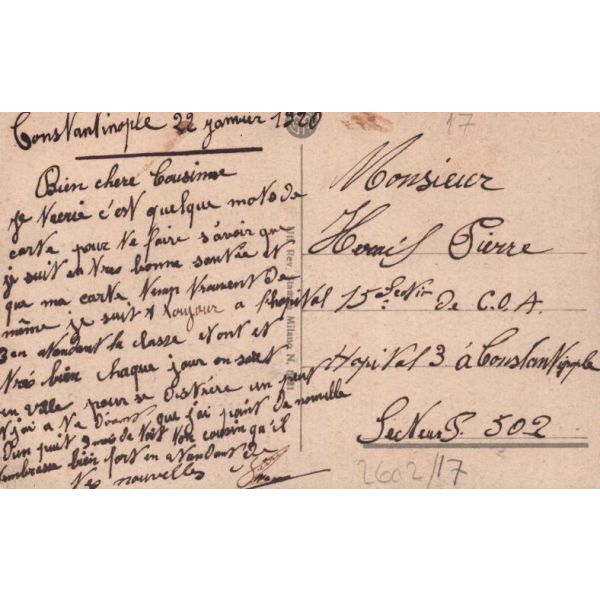 Constantinople 22 janvier 1920
Bien chere Cousinne
je t'ecrie c'est quelque mots de
carte pour te faire s'avoir que
je suit en tres bonne santée et
que ma carte temp trouvent de
même je suit toujour a l'hopital
3 en atendant la classe et ont est
tres bien chaque jour on sort
en ville pour se distrere un peut
a te que j'ai point de nouvelle
puit 2 mois de ton cousin qu'il
t'embrasse bien fort en atendant de
tes nouvelles
Milano
17
Monsieur
Pierre
15e Section de C.O.A.
Hopital 3 à Constantinople
Secteur P. 502
2602/17